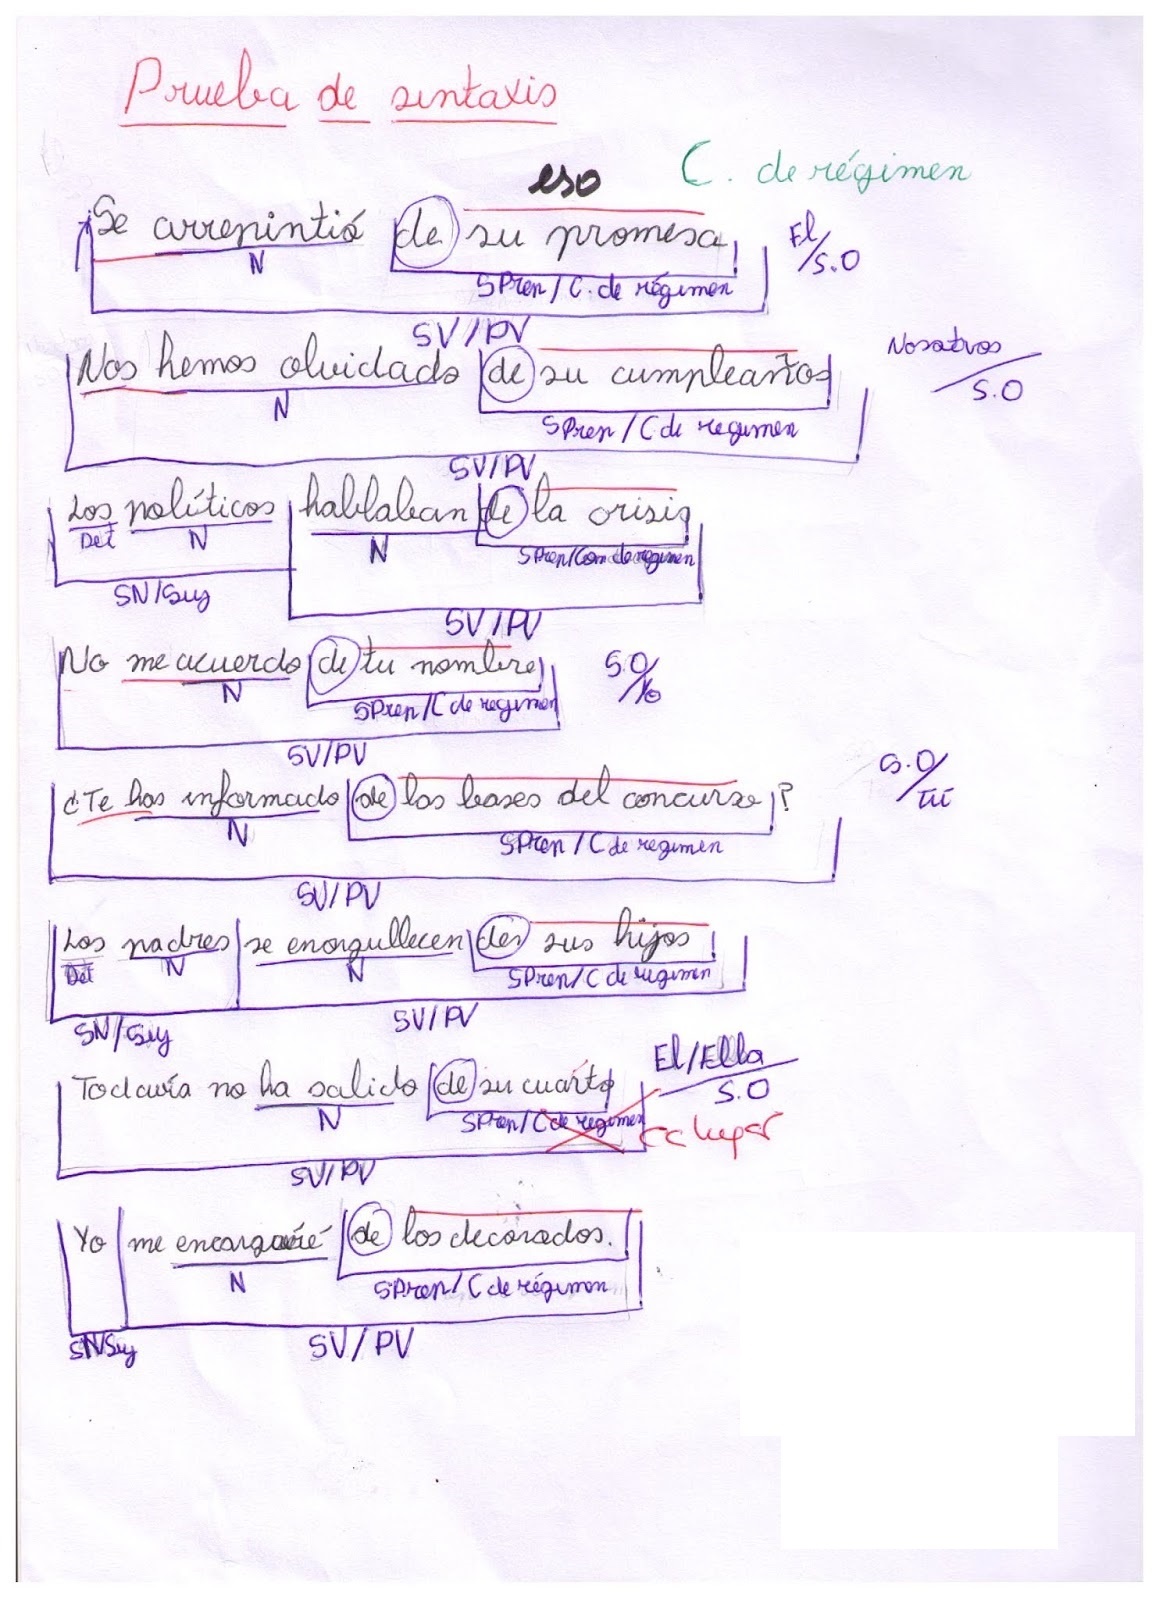 Prueba de sintaxis
eso C. de régimen
Se arrepintió de su promesa El/S.O
N SPrep/C. de régimen
SV/PV
Nos hemos olvidado de su cumpleaños Nosotros/S.O
N SPrep/C de regimen
SV/PV
Los políticos hablaban de la crisis
Det N N SPrep/Com de regimen
SN/Suj
SV/PV
No me acuerdo de tu nombre S.O/Yo
N SPrep/C de regimen
SV/PV
¿Te has informado de las bases del concurso? S.O/Tú
N SPrep/C de regimen
SV/PV
Los padres se enorgullecen de sus hijos
Det N N SPrep/C de regimen
SN/Suj SV/PV
Todavía no ha salido de su cuarto El/Ella/S.O
N SPrep/C de regimen CC lugar
SV/PV
Yo me encargaré de los decorados.
N SPrep/C de régimen
SN/Suj SV/PV